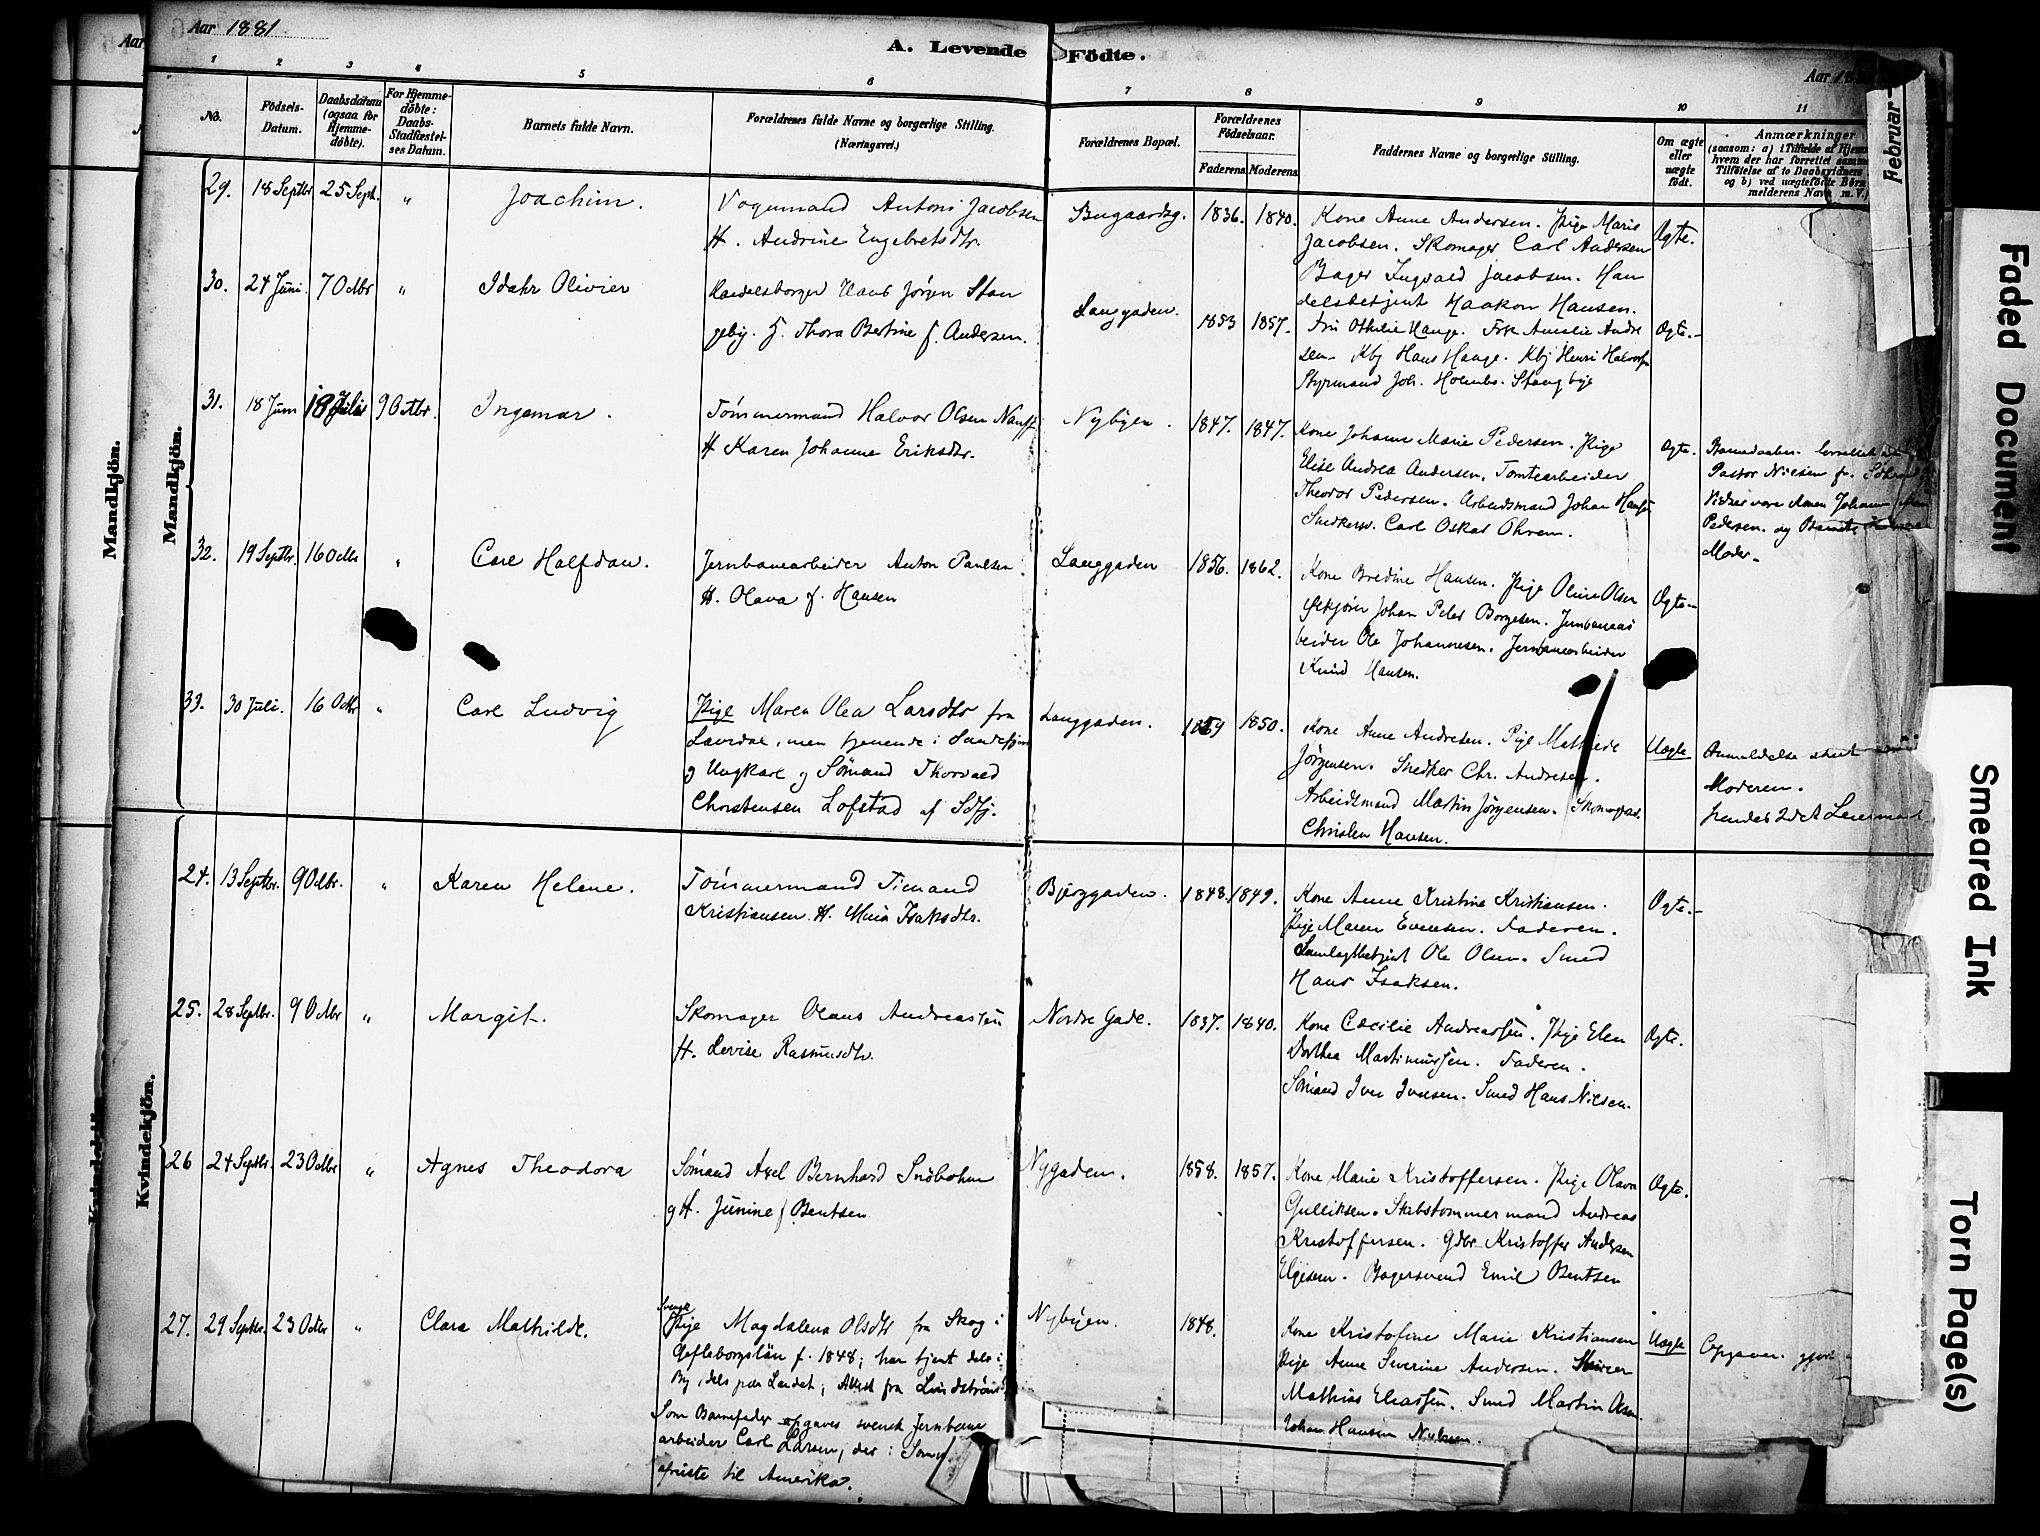 Aar 1881
A. Levende Födte.
Aar
1 2 3 4 5 6 7 8 9 10 11
No.
Födsels-Datum.
Daabsdatum (ogsaa for Hjemme-döbte).
For Hjemme-döbte: Daabs-Stadfæstel-ses Datum.
Barnets fulde Navn.
Forældrenes fulde Navne og borgerlige Stilling. (Næringsvei.)
Forældrenes Bopæl.
Forældrenes Födselsaar.
Faderens Moderens
Faddernes Navne og borgerlige Stilling.
Om ægte eller uægte födt.
Anmærkninger
(saasom: a) i Tilfælde af Hjem
hvem der har forrettet samme
Tilföielse af to Daabsvidners
og b) ved uægtefödte Börn
melderens Navn m. V.)
Mandkjön.
Mandkjön.
29. 18 Septbr 25 Sept. " Joachim.
Vognmand Antoni Jacobsen
H. Andrine Engebretsdtr.
Bugaardsg. 1836. 1840.
Kone Anne Andersen. Pige Marie
Jacobsen. Skomager Carl Andersen
Bager Ingvald Jacobsen. Han
delsbetjent Haakon Hansen.
Ægte.
30. 24 Juni. 7 Octbr " Idahr Olivier
Handelsborger Hans Jörgen Stan
geby. H. Thora Bertine f. Andersen.
Langgaden. 1853 1857.
Fru Othilie Hauge. Frk Amalie Andre
sen. Kbj Hans Hauge. Kbj Henri Halvors
Styrmand Joh. Holmbo. Stangbye
Ægte.-
31. 18 Juni 18 Juli 9 Octbr. Ingemar.
Tömmermand Halvor Olsen Nauff
H Karen Johanne Eriksdtr.
Nybyen. 1847. 1847.
Kone Johanne Marie Pedersen. Pige
Elise Andrea Andersen. Tomtearbeider
Theodor Pedersen. Arbeidsmand Johan Hansen
Snedkersv. Carl Oskar Öhren.
Ægte.
Pastor Nielsen
Vidner vare Anne Johanne
Pedersen. og Barnets
Moder.
32. 19 Septbr. 16 Octbr " Carl Halfdan.
Jernbanearbeider Anton Paulsen
H. Olava f. Hansen
Langgaden 1856. 1862.
Kone Bredine Hansen. Pige Oline Olsen
Johan Peter Borgesen. Jernbanear
beider Ole Johannesen. Jernbanearbeider
Knud Hansen.
Ægte-
33. 30 Juli. 16 Octbr " Carl Ludvig
Pige Maren Olea Larsdtr fra
Laurdal, men tjenende i Sandefjord
og Ungkarl og Sömand Thorvald
Christensen Lofstad af Sdfj.
Langgaden. 1859 1850.
Kone Anne Andresen. Pige Mathilde
Jörgensen. Snedker Chr. Andresen.
Arbeidsmand Martin Jörgensen. Skomager
Christen Hansen.
Uægte
Anmeldelse skeet
Moderen.
Faders 2det Leiermaal
Kvindekjön.
Kvindekjön.
24. 13 Septbr. 9 Octbr. " Karen Helene.
Tömmermand Timand
Kristiansen. H. Mina Isaksdtr.
Bjerggaden. 1848. 1849.
Kone Anne Kristine Kristiansen.
Pige Maren Evensen. Faderen.
Samlagsbetjent Ole Olsen. Smed
Hans Isaksen.
Ægte.-
25. 28 Septbr. 9 Octbr " Margit.
Skomager Olaus Andreassen
H. Lovise Rasmusdtr.
Nordre Gade. 1837. 1840.
Kone Cæcilie Andreassen. Pige Elen
Dorthea Martinussen. Faderen.
Sömand Iver Iversen. Smed Hans Nilsen.
Ægte.
26 24 Septbr. 23 Octbr " Agnes Theodora
Sömand Axel Bernhard Snöbohm
og H. Junine f Bentsen
Nygaden. 1858. 1857.
Kone Marie Kristoffersen. Pige Olava
Gulliksen. Skibstömmermand Andreas
Kristoffersen. Gdbr Kristoffer Andersen
Elgesem. Bagersvend Emil Bentsen
Ægte.
27. 29 Septbr. 23 Octbr " Clara Mathilde.
Svensk
Pige Magdalena Olsdtr fra Skog i
Gefleborgslän f. 1848; har tjent dels i
By, dels paa Landet; Attest fra Lindström
Som Barnefader opgaves svensk Jernbane
arbeider Carl Larsen, der i Sommer
afreiste til Amerika.
Nybyen. 1848.
Kone Kristofine Marie Kristiansen
Pige Anne Severine Andersen. Murer
Mathias Eliassen. Smed Martin Olsen.
Johan Hansen Nybyen.
Uægte
Opgaven gjort
Februar-
Faded Document
Smeared Ink
Torn Page(s)